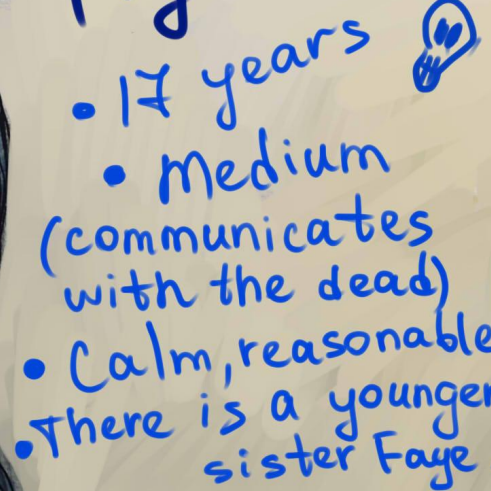 • 17 years
• Medium
(communicates
with the dead)
• Calm, reasonable
• There is a younger
sister Faye